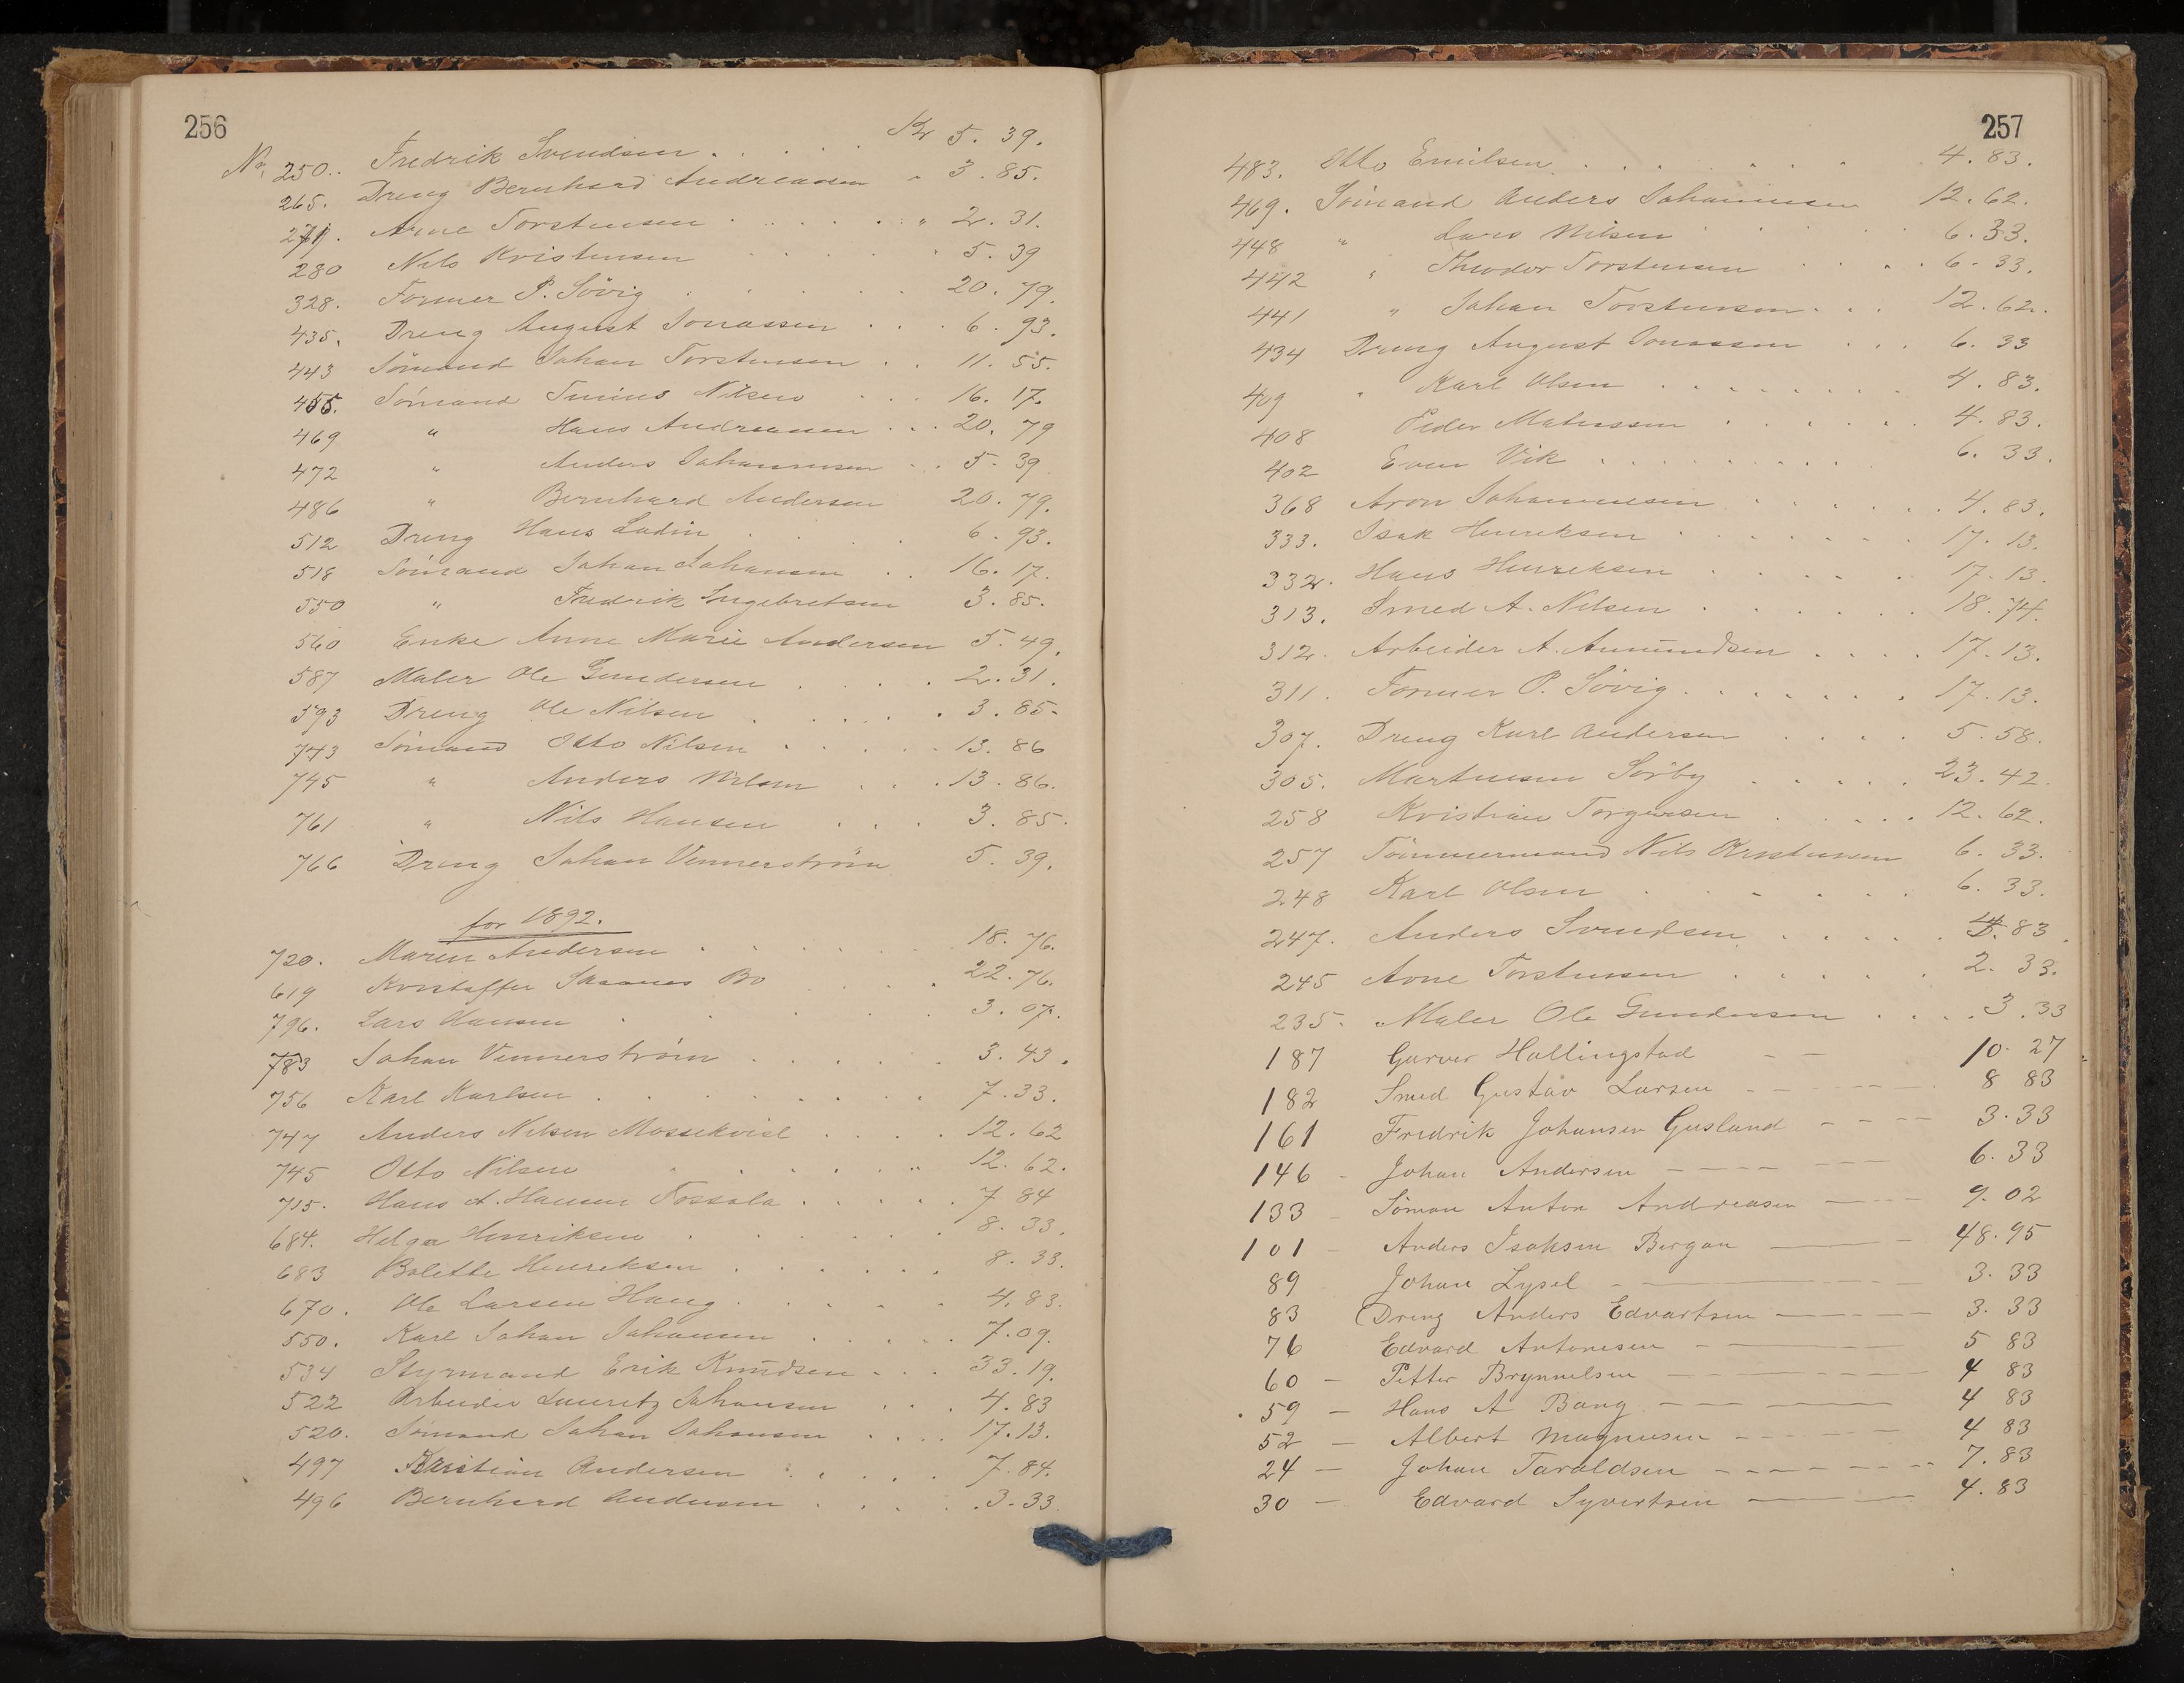 256
No, 250.. Fredrik Svendsen . . . . . Kr 5. 39.
265. Dreng Bernhard Andreassen " 3. 85.
271. Arne Torstensen . . . . . " 2. 31.
280 Nils Kristensen . . . . . 5. 39
328. Former P. Sövig . . . . . 20. 79.
435. Dreng August Jonassen . . . 6. 93.
443 Sömand Johan Torstensen . . 11. 55.
455. Sömand Tinius Nilsen . . . 16. 17.
469 " Hans Andreassen . . . 20. 79
472 " Anders Johannesen . . . 5. 39
486 " Bernhard Andersen 20. 79.
512 Dreng Hans Ludin . . . . 6. 93.
518 Sömand Johan Johansen . . 16. 17.
550 " Fredrik Ingebretsen 3. 85.
560 Enke Anne Marie Andersen 5. 49.
587 Maler Ole Gundersen . . . . 2. 31.
593 Dreng Ole Nilsen . . . . . 3. 85.
743 Sömand Otto Nilsen . . . . . 13. 86
745 " Anders Nilsen . . . 13. 86.
761 " Nils Hansen . . . 3. 85.
766 Dreng Johan Vennerström 5. 39.
for 1892.
720. Maren Andersen . . . . . 18. 76.
619 Kristoffer Bo . . . . 22. 76.
796. Lars Hansen . . . . . 3. 07.
783 Johan Vennerström . . . . . 3. 43.
756 Karl Karlsen . . . . . . . 7. 33.
747 Anders Nilsen . . . . 12. 62
745 Otto Nilsen . . . . . . " 12. 62.
715. Hans A. Hansen Fossala . . . . . 7 84
684. Helga Henriksen . . . . . 8. 33.
683 Bolette Henriksen . . . . . . 8. 33.
670. Ole Larsen Haug . . . . . 4. 83.
550. Karl Johan Johansen . . . . . 7. 09.
534 Styrmand Erik Knudsen . . . 33. 19.
522 Arbeider Lauritz Johansen . . . 4. 83
520. Sömand Johan Johansen . . . . 17. 13.
497 Kristian Andersen . . . . . 7. 84.
496 Bernhard Andersen . . . . . 3. 33
257
483. Otto Emilsen . . . . . . . 4. 83.
469. Sömand Anders Johannesen 12. 62.
448 " Lars Nilsen . . . . . 6. 33.
442 " Theodor Torstensen . . . . 6. 33.
441 " Johan Torstensen . . . 12. 62.
434 Dreng August Jonassen . . . 6. 33
409 " Karl Olsen . . . . . . . . 4. 83.
408 Peder Matiassen . . . . . . 4. 83.
402 Even Vik . . . . . . . . . 6. 33.
368 Aron Johannesen . . . . . . . 4. 83.
333. Isak Henriksen . . . . . . . 17. 13.
332. Hans Henriksen . . . . . . 17. 13.
313. Smed A. Nilsen . . . . . . . 18. 74.
312. Arbeider A. Amundsen . . . . 17. 13.
311. Former P. Sövig . . . . . . . 17. 13.
307. Dreng Karl Andersen . . . . 5. 58.
305. Martinsen Sörby . . . . . . 23. 42.
258 Kristian Torgersen . . . . . 12. 62.
257 Tömmermand Nils Kristensen 6. 33.
248 Karl Olsen . . . . . . 6. 33.
247. Anders Svendsen . . . . . 4. 83.
245 Arne Torstensen . . . . . . 2. 33.
235. Maler Ole Gundersen . . . . 3. 33
187 Garver Hollingstad – – 10. 27
182 Smed Gustav Larsen – – – – 8 83
161 Fredrik Johansen Gusland – – – 3. 33
146 – Johan Andersen – – – – – – 6. 33
133 – Söman Anton Andreasen – – – 9. 02
101 – Anders Isaksen Bergan – – 48. 95
89 Johan Lysel – – – – 3. 33
83 Dreng Anders Edvartsen – – – 3. 33
76 Edvard Antonisen – – – – 5 83
60 – Petter Brynnelsen – – – – 4 83
59 – Hans A Bang – – – – 4 83
52 – Albert Magnusen – – – – 4 83
24 – Johan Taraldsen – – – – – 7. 83
30 – Edvard Syvertsen – – – 4. 83